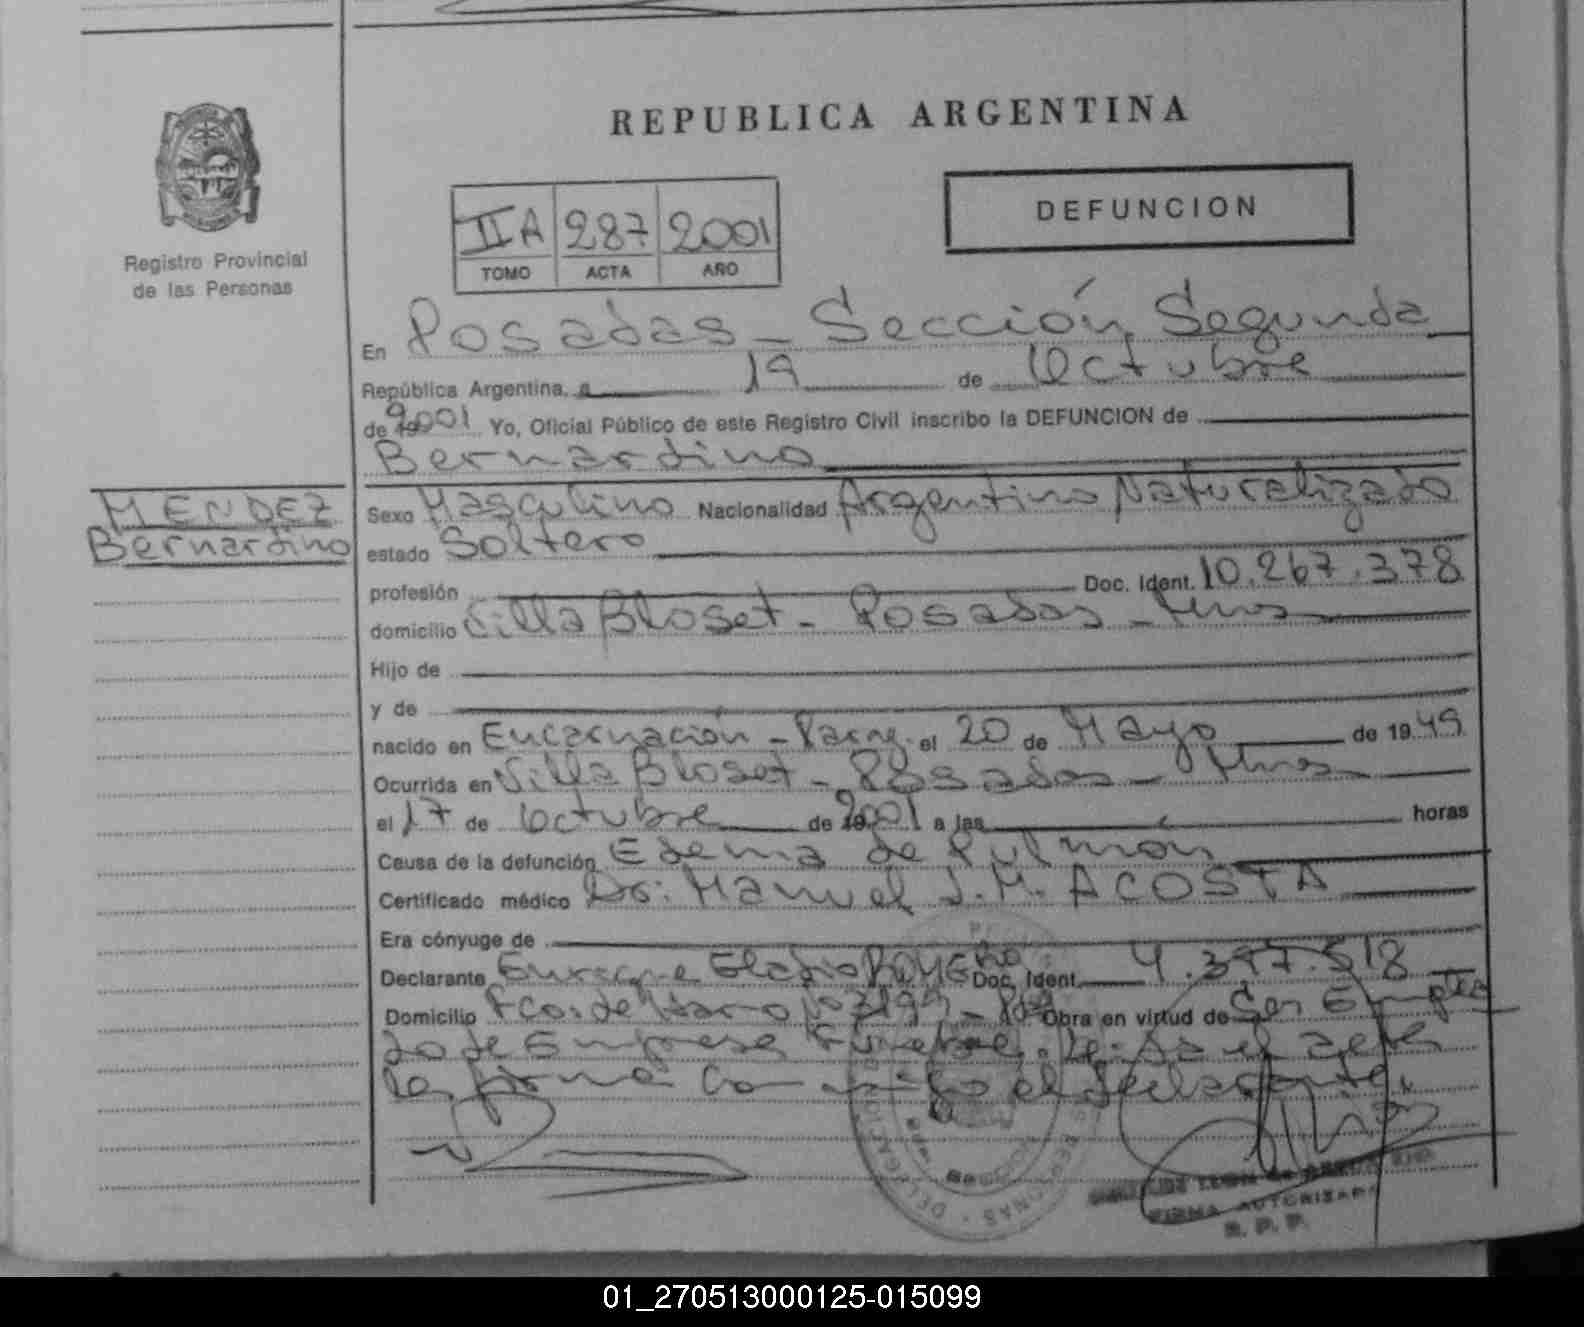 REPUBLICA ARGENTINA
DEFUNCION
Registro Provincial
de las Personas
IIA 287 2001
TOMO ACTA AÑO
En Posadas - Sección Segunda
República Argentina, a 19 de Octubre
de 2001 Yo, Oficial Público de este Registro Civil inscribo la DEFUNCION de
Bernardino
MENDEZ
Bernardino
Sexo Masculino Nacionalidad Argentino Naturalizado
estado Soltero
profesión Doc. Ident. 10.267.378
domicilio Villa Bloset - Posadas - Mnes
Hijo de
y de
nacido en Encarnación - Parag. el 20 de Mayo de 1949
Ocurrida en Villa Bloset - Posadas - Mnes
el 17 de Octubre de 2001 a las horas
Causa de la defunción Edema de Pulmón
Certificado médico Dr: Manuel J.M. ACOSTA
Era cónyuge de
Declarante Enrique Eladio ROMERO Doc. Ident. 4.397.518
Domicilio Fco. de Haro Obra en virtud de Ser Emplea
do de Empresa Funebre.
firma conmigo el declarante.
FIRMA AUTORIZADA
R. P. P.
01_270513000125-015099